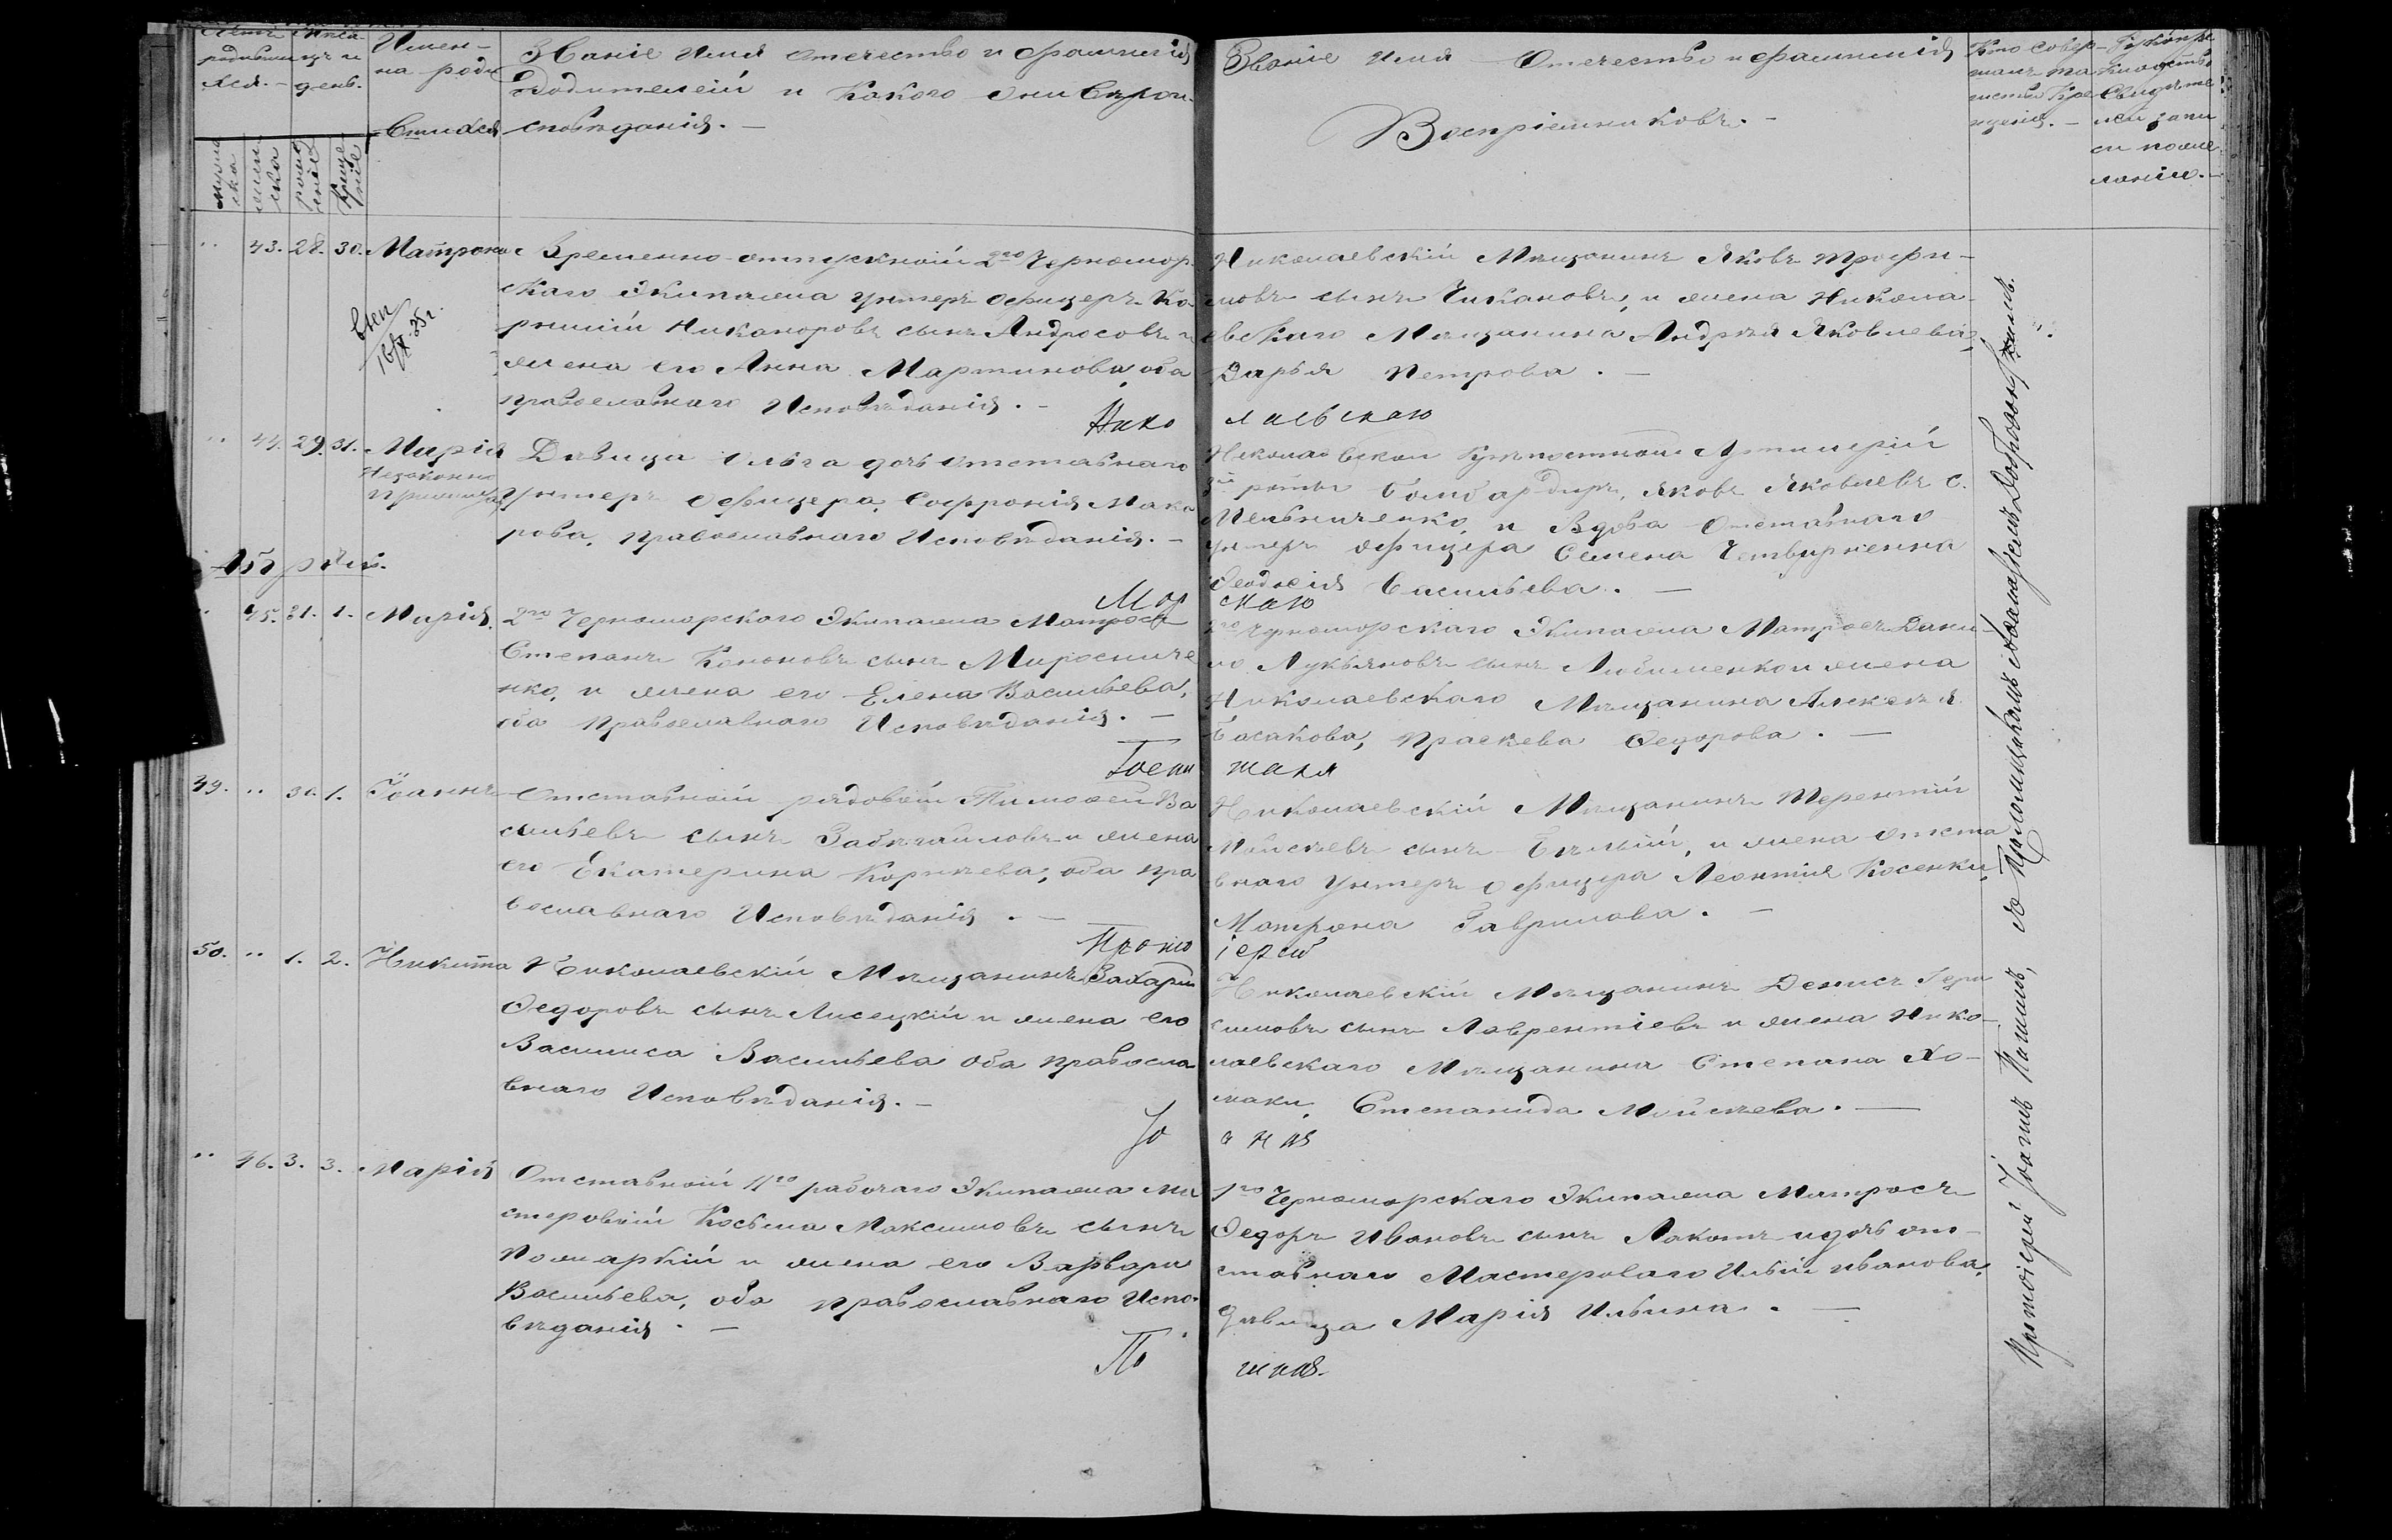 Имен-
на роди
вшихся
Званіе имя отчество и фамилія
Родителей и какого они вѣрои-
сповѣданія. —
Званіе имя Отчество и фамилія
Воспріемниковъ. —
Кто совер-
шалъ та
инство кре
щенія. —
Рукопри
кладство
свидѣте
лей запи
си по же
ланію. —
43. 28. 30. Матрона
Временно-отпускной 2го Черномор-
скаго Экипажа унтеръ офицеръ Ко
рнилій Никаноровъ сынъ Андросовъ и
жена его Анна Мартинова, оба
православнаго Исповѣданія. —
Николаевскій Мѣщанинъ Яковъ Трофи-
мовъ сынъ Чикановъ, и жена Никола-
евскаго Мѣщанина Андрея Яковлева,
Дарья Петрова. —
Нико
лаевскаю
44. 29. 31. Марія
Незаконно
прижитая
Дѣвица Ольга дочь отставнаго
унтеръ офицера Софронія Мака
рова, православнаго Исповѣданія. —
Николаевской Крѣпостной Артилеріи
роты бомбардиръ, Яковъ Яковлевъ с.
Мельниченко, и Вдова Отставнаго
унтеръ офицера Семена Четвирженка
Феодосія Васильева. —
45. 31. 1. Марія.
2го Черноморскаго Экипажа Матросъ
Степанъ Кононовъ сынъ Мироснич​е
нко, и жена его Елена Васильева,
оба православнаго Исповѣданія. —
скаю
2го Черноморскаго Экипажа Матросъ Дани-
ло Лукьяновъ сынъ Любименко и жена
Николаевскаго Мѣщанина Алексѣя
Басакова, Праскева Федорова. —
49. 31. 1. Іоаннъ
Отставной рядовой Тимофей Ва
сильевъ сынъ Забѣгайловъ и жена
его Екатерина Корнѣева, оба пра
вославнаго Исповѣданія. —
Николаевскій Мѣщанинъ Терентій
Мойсѣевъ сынъ Бѣлый, и жена отста
внаго унтеръ офицера Леонтія Косенки,
Матрона Гаврилова. —
50. 1. 2. Никита
Прото
іерей
Николаевскій Мѣщанинъ Захарій
Федоровъ сынъ Лисецкій и жена его
Василиса Васильева оба правосла
внаго Исповѣданія. —
Николаевскій Мѣщанинъ Денисъ Гера
симовъ сынъ Лаврентіевъ и жена Нико-
лаевскаго Мѣщанина Степана Хо-
маки, Степанида Мойсѣева. —
Іо
аннъ
46. 3. 3. Марія
Отставной 11го рабочаго Экипажа ма
стеровой Косьма Максимовъ сынъ
Пожаркій и жена его Варвара
Васильева, оба православнаго Испо-
вѣданія. —
1го Черноморскаго Экипажа Матросъ
Федоръ Ивановъ сынъ Лакомъ и дочь от-
ставнаго Мастероваго Ильи Иванова,
дѣвица Марія Ильина. —
Протоіерей Іоаннъ